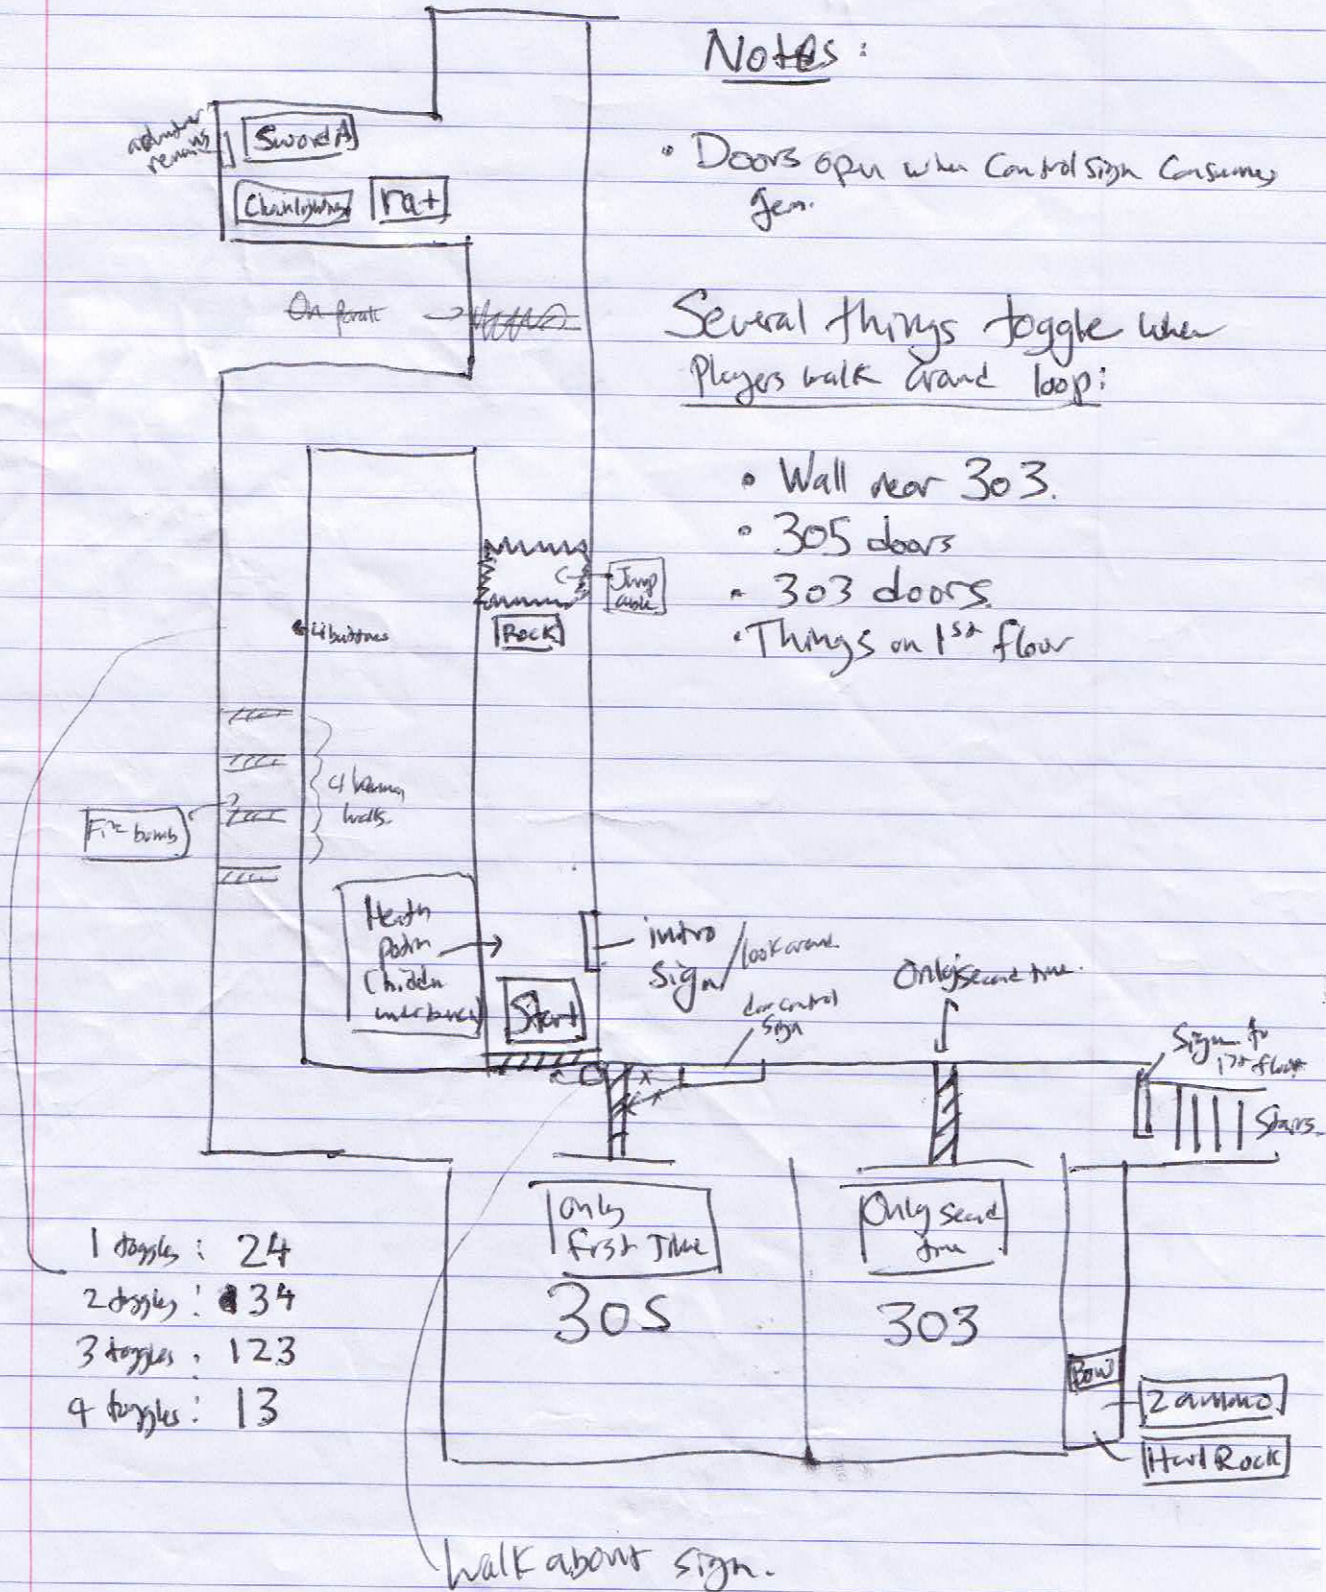 Notes:
• Doors open when Control sign Consumes
gem.
Several things toggle when
Players walk around loop:
• Wall near 303.
• 305 doors
• 303 doors.
• Things on 1st floor
remains
Sword A
rat
Rock
Jump
able
4 buttons
4
walls.
Fire bomb
Health
potion
(hidden
under bench)
Start
intro
sign / look around
door control
sign
Only second time.
Sign to
1st floor
Stairs
Only
first Time
305
Only second
time
303
Bow
2 ammo
Hard Rock
1 toggles: 24
2 toggles: 34
3 toggles: 123
4 toggles: 13
Walk about sign.